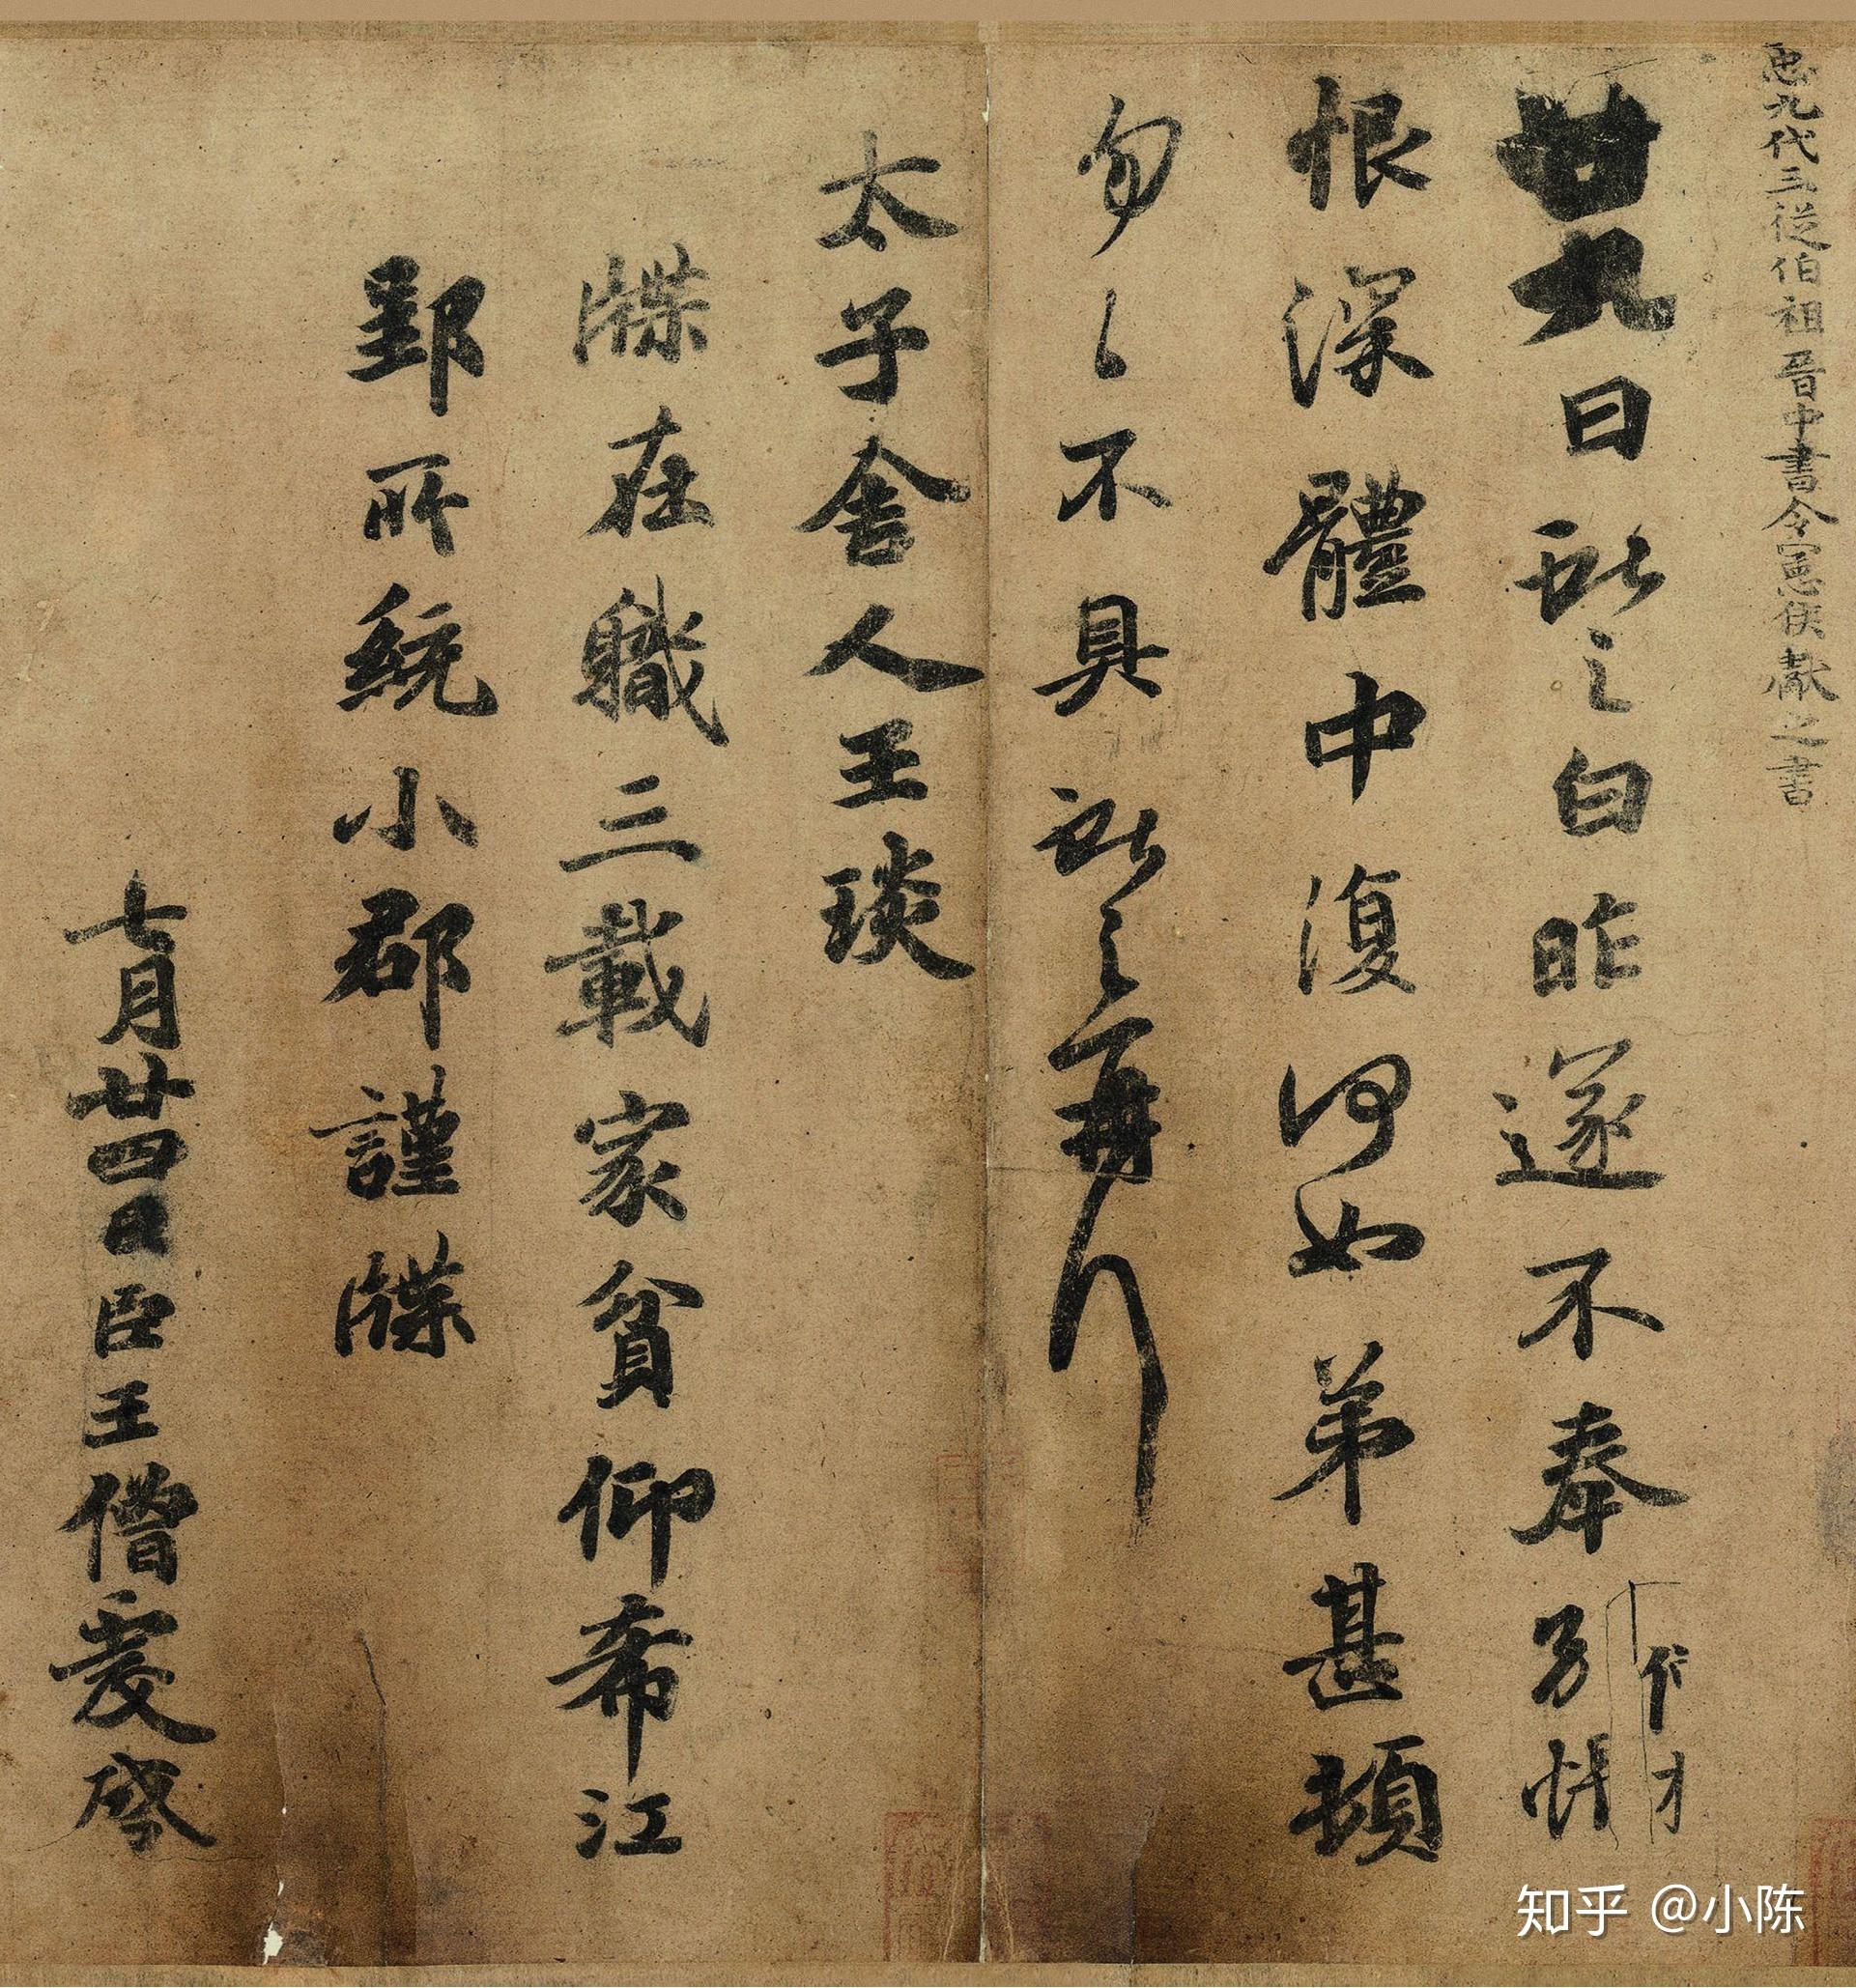 𢘑九代三從伯祖晉中書令憲侯獻之書
廿九日獻之白昨遂不奉別悵
恨深體中復何如弟甚頓
勿〻不具獻之再拜
太子舍人王琰
牒在職三載家貧仰希江
郢所統小郡謹牒
七月廿四日臣王僧虔啓
知乎 @小陈